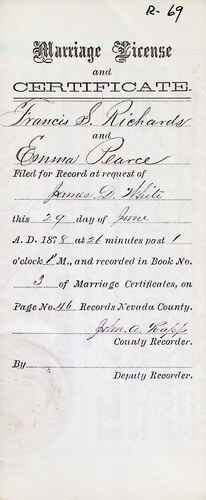 R-69
Marriage License
and
CERTIFICATE.
Francis S. Richards
and
Emma Pearce
Filed for Record at request of
James D. White
this 29 day of June
A. D. 1878 at 21 minutes past 1
o'clock P M., and recorded in Book No.
3 of Marriage Certificates, on
Page No. 46 Records Nevada County.
John A. Rapp
County Recorder.
By
Deputy Recorder.